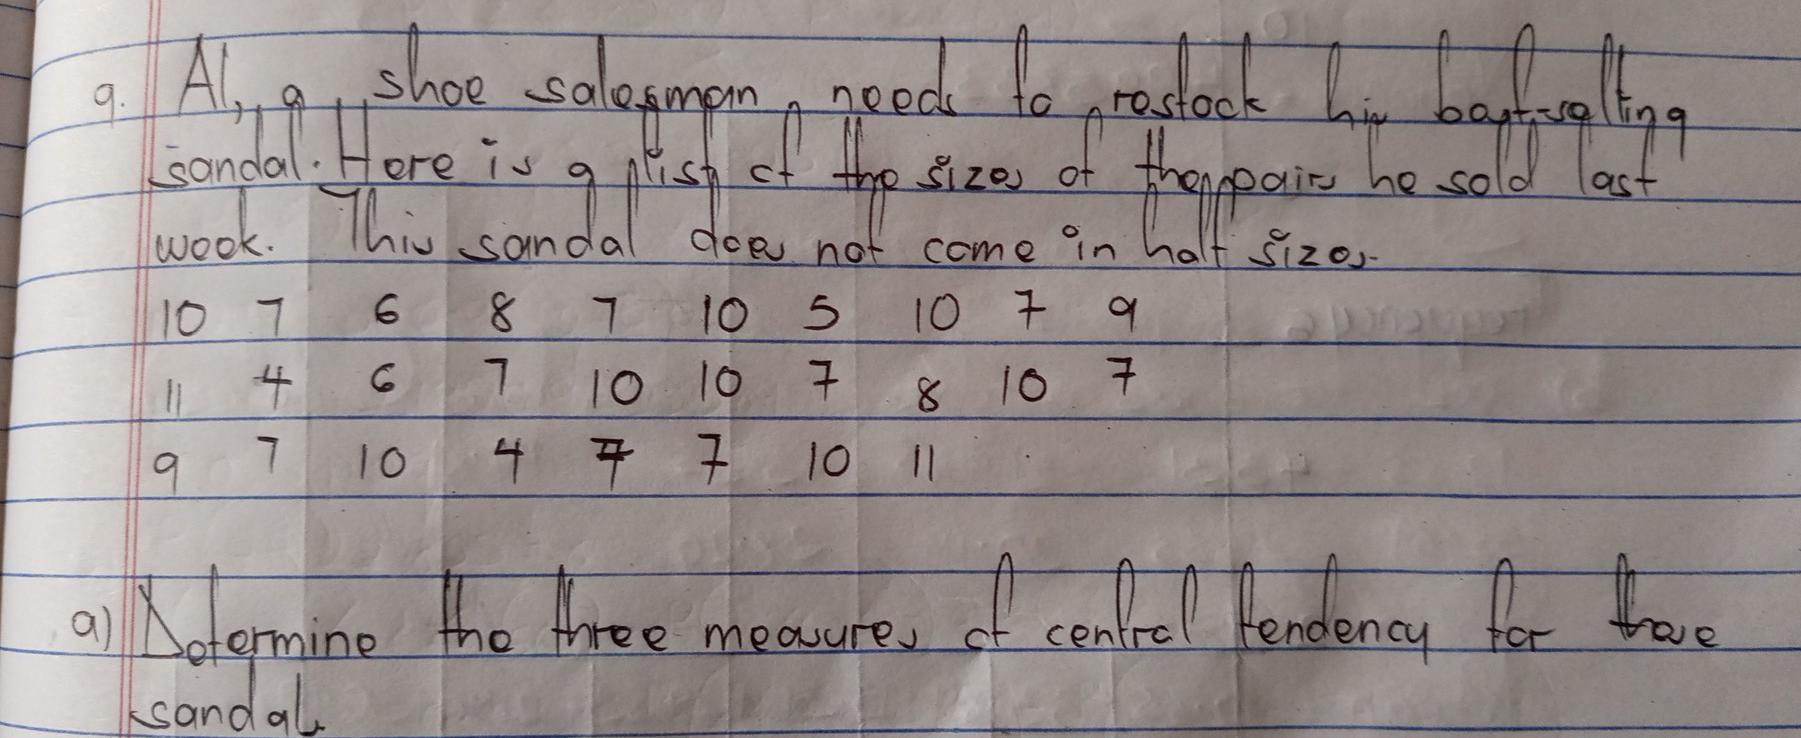 9. Al, a shoe salesman, needs to restock his best-selling
sandal. Here is a list of the sizes of the pairs he sold last
week. This sandal does not come in half sizes.
10 7 6 8 7 10 5 10 7 9
11 4 6 7 10 10 7 8 10 7
9 7 10 4 7 7 10 11
a) Determine the three measures of central tendency for these
sandals